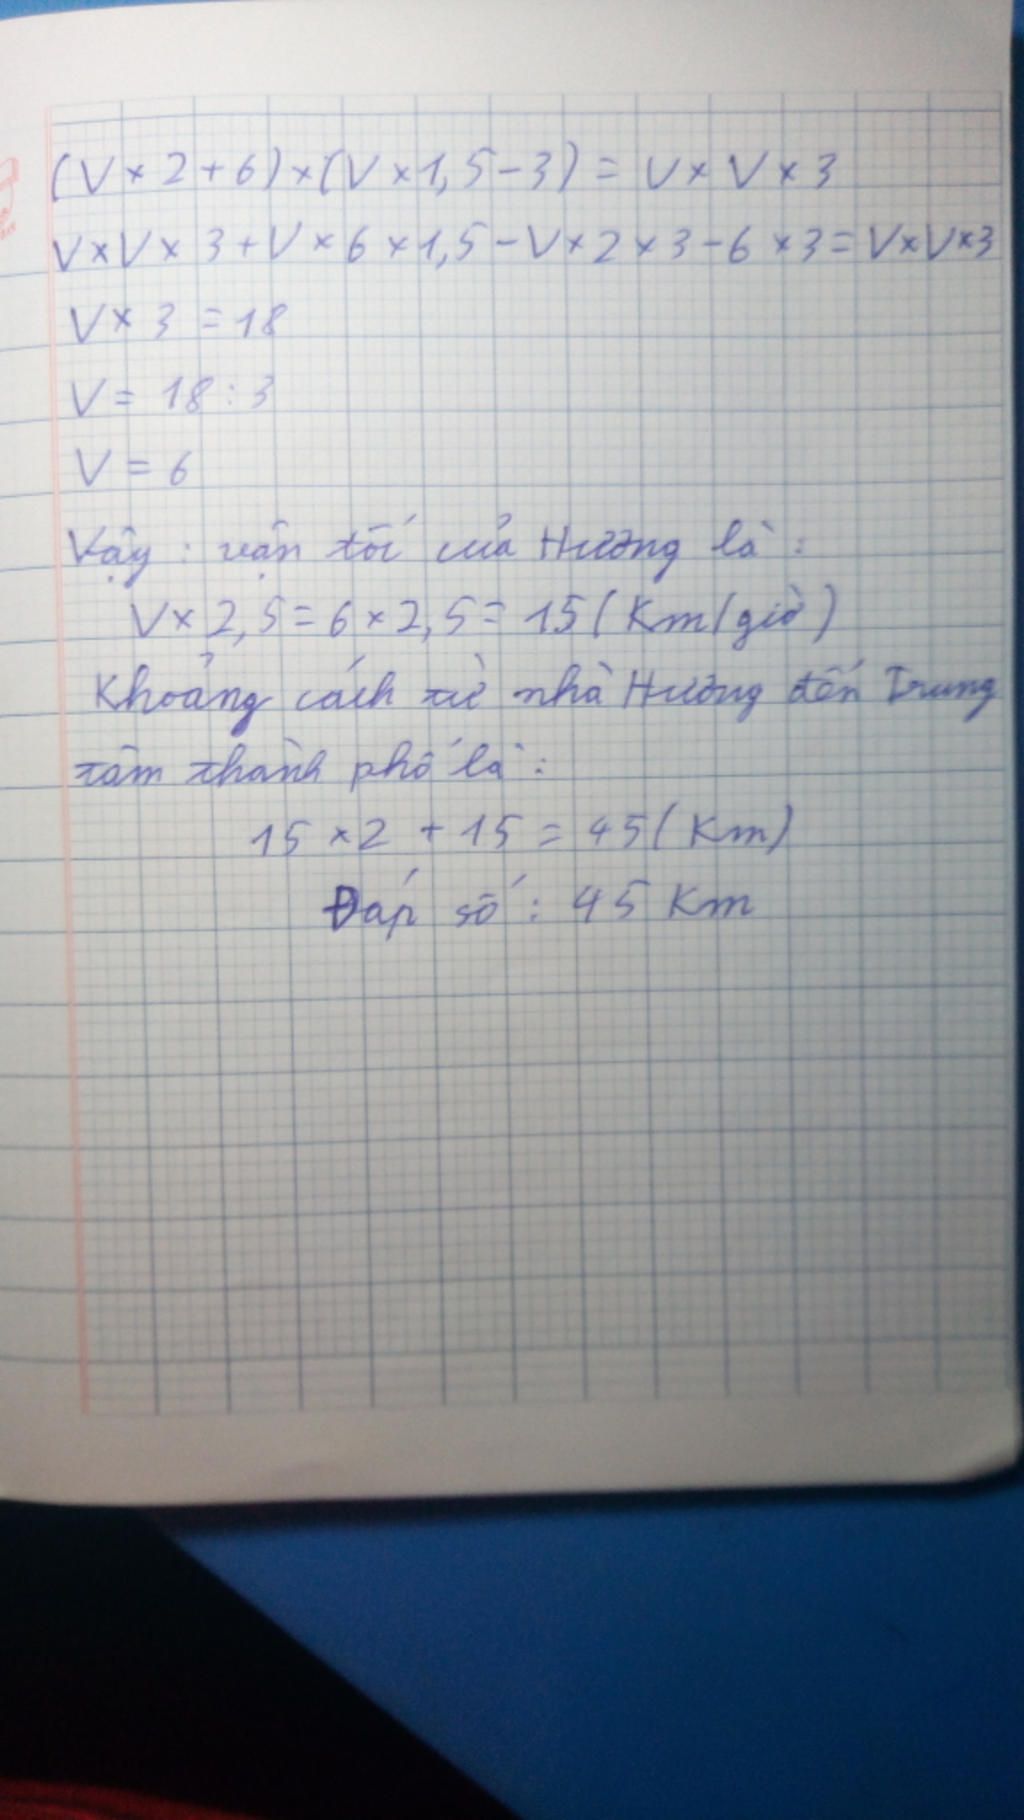 (V × 2 + 6) × (V × 1,5 - 3) = V × V × 3
V × V × 3 + V × 6 × 1,5 - V × 2 × 3 - 6 × 3 = V × V × 3
V × 3 = 18
V = 18 : 3
V = 6
Vậy : vận tốc của Hường là :
V × 2,5 = 6 × 2,5 = 15 (Km/giờ)
Khoảng cách từ nhà Hường đến Trung
tâm thành phố là :
15 × 2 + 15 = 45 (Km)
Đáp số : 45 Km